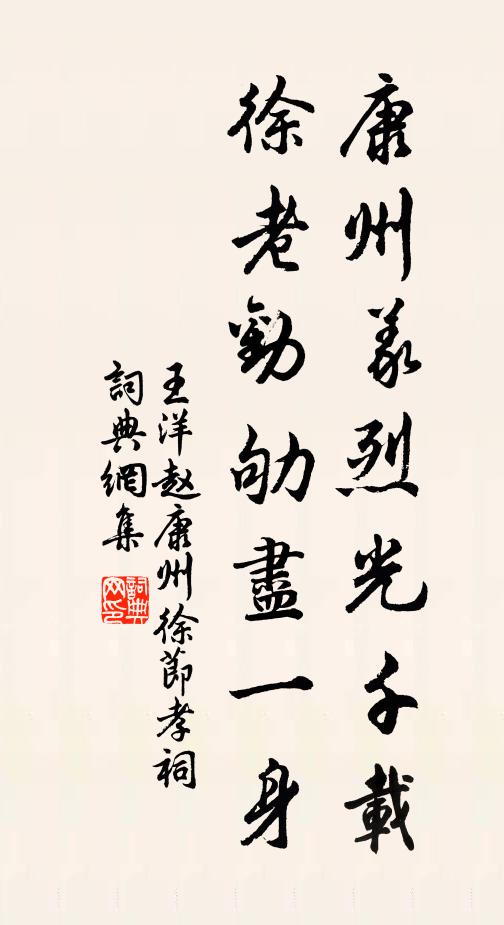 康州義烈光千載
徐老劬劬盡一身
王洋赵康州徐節孝祠
詞典網集
詞典网印